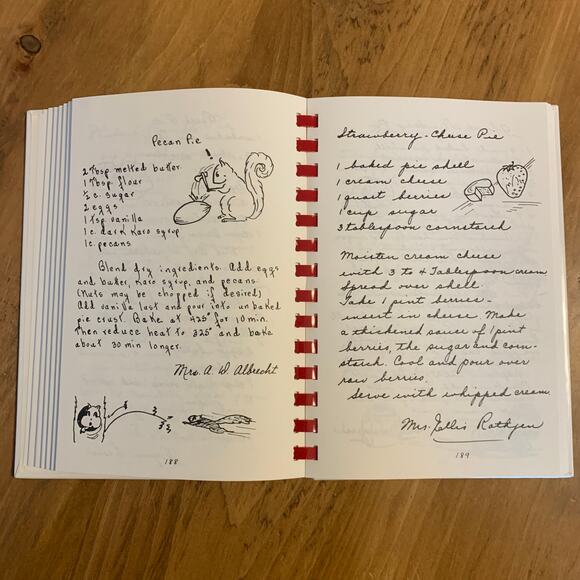 Pecan Pie
2 Tbsp melted butter
1 Tbsp. flour
½ c. sugar
2 eggs
1 tsp. vanilla
1 c. dark Karo syrup
1 c. pecans
Blend dry ingredients. Add eggs
and butter, Karo syrup, and pecans.
(Nuts may be chopped if desired)
Add vanilla last and pour into unbaked
pie crust. Bake at 425° for 10 min.
Then reduce heat to 325° and bake
about 30 min longer.
Mrs. A. D. Albrecht
188
Strawberry-Cheese Pie
1 baked pie shell
1 cream cheese
1 quart berries
1 cup sugar
3 tablespoon cornstarch
Moisten cream cheese
with 3 to 4 Tablespoon cream
Spread over shell.
Take 1 pint berries -
insert in cheese. Make
a thickened sauce of 1 pint
berries, the sugar and corn-
starch. Cool and pour over
raw berries.
Serve with whipped cream.
Mrs. Ellis Rothjen
189